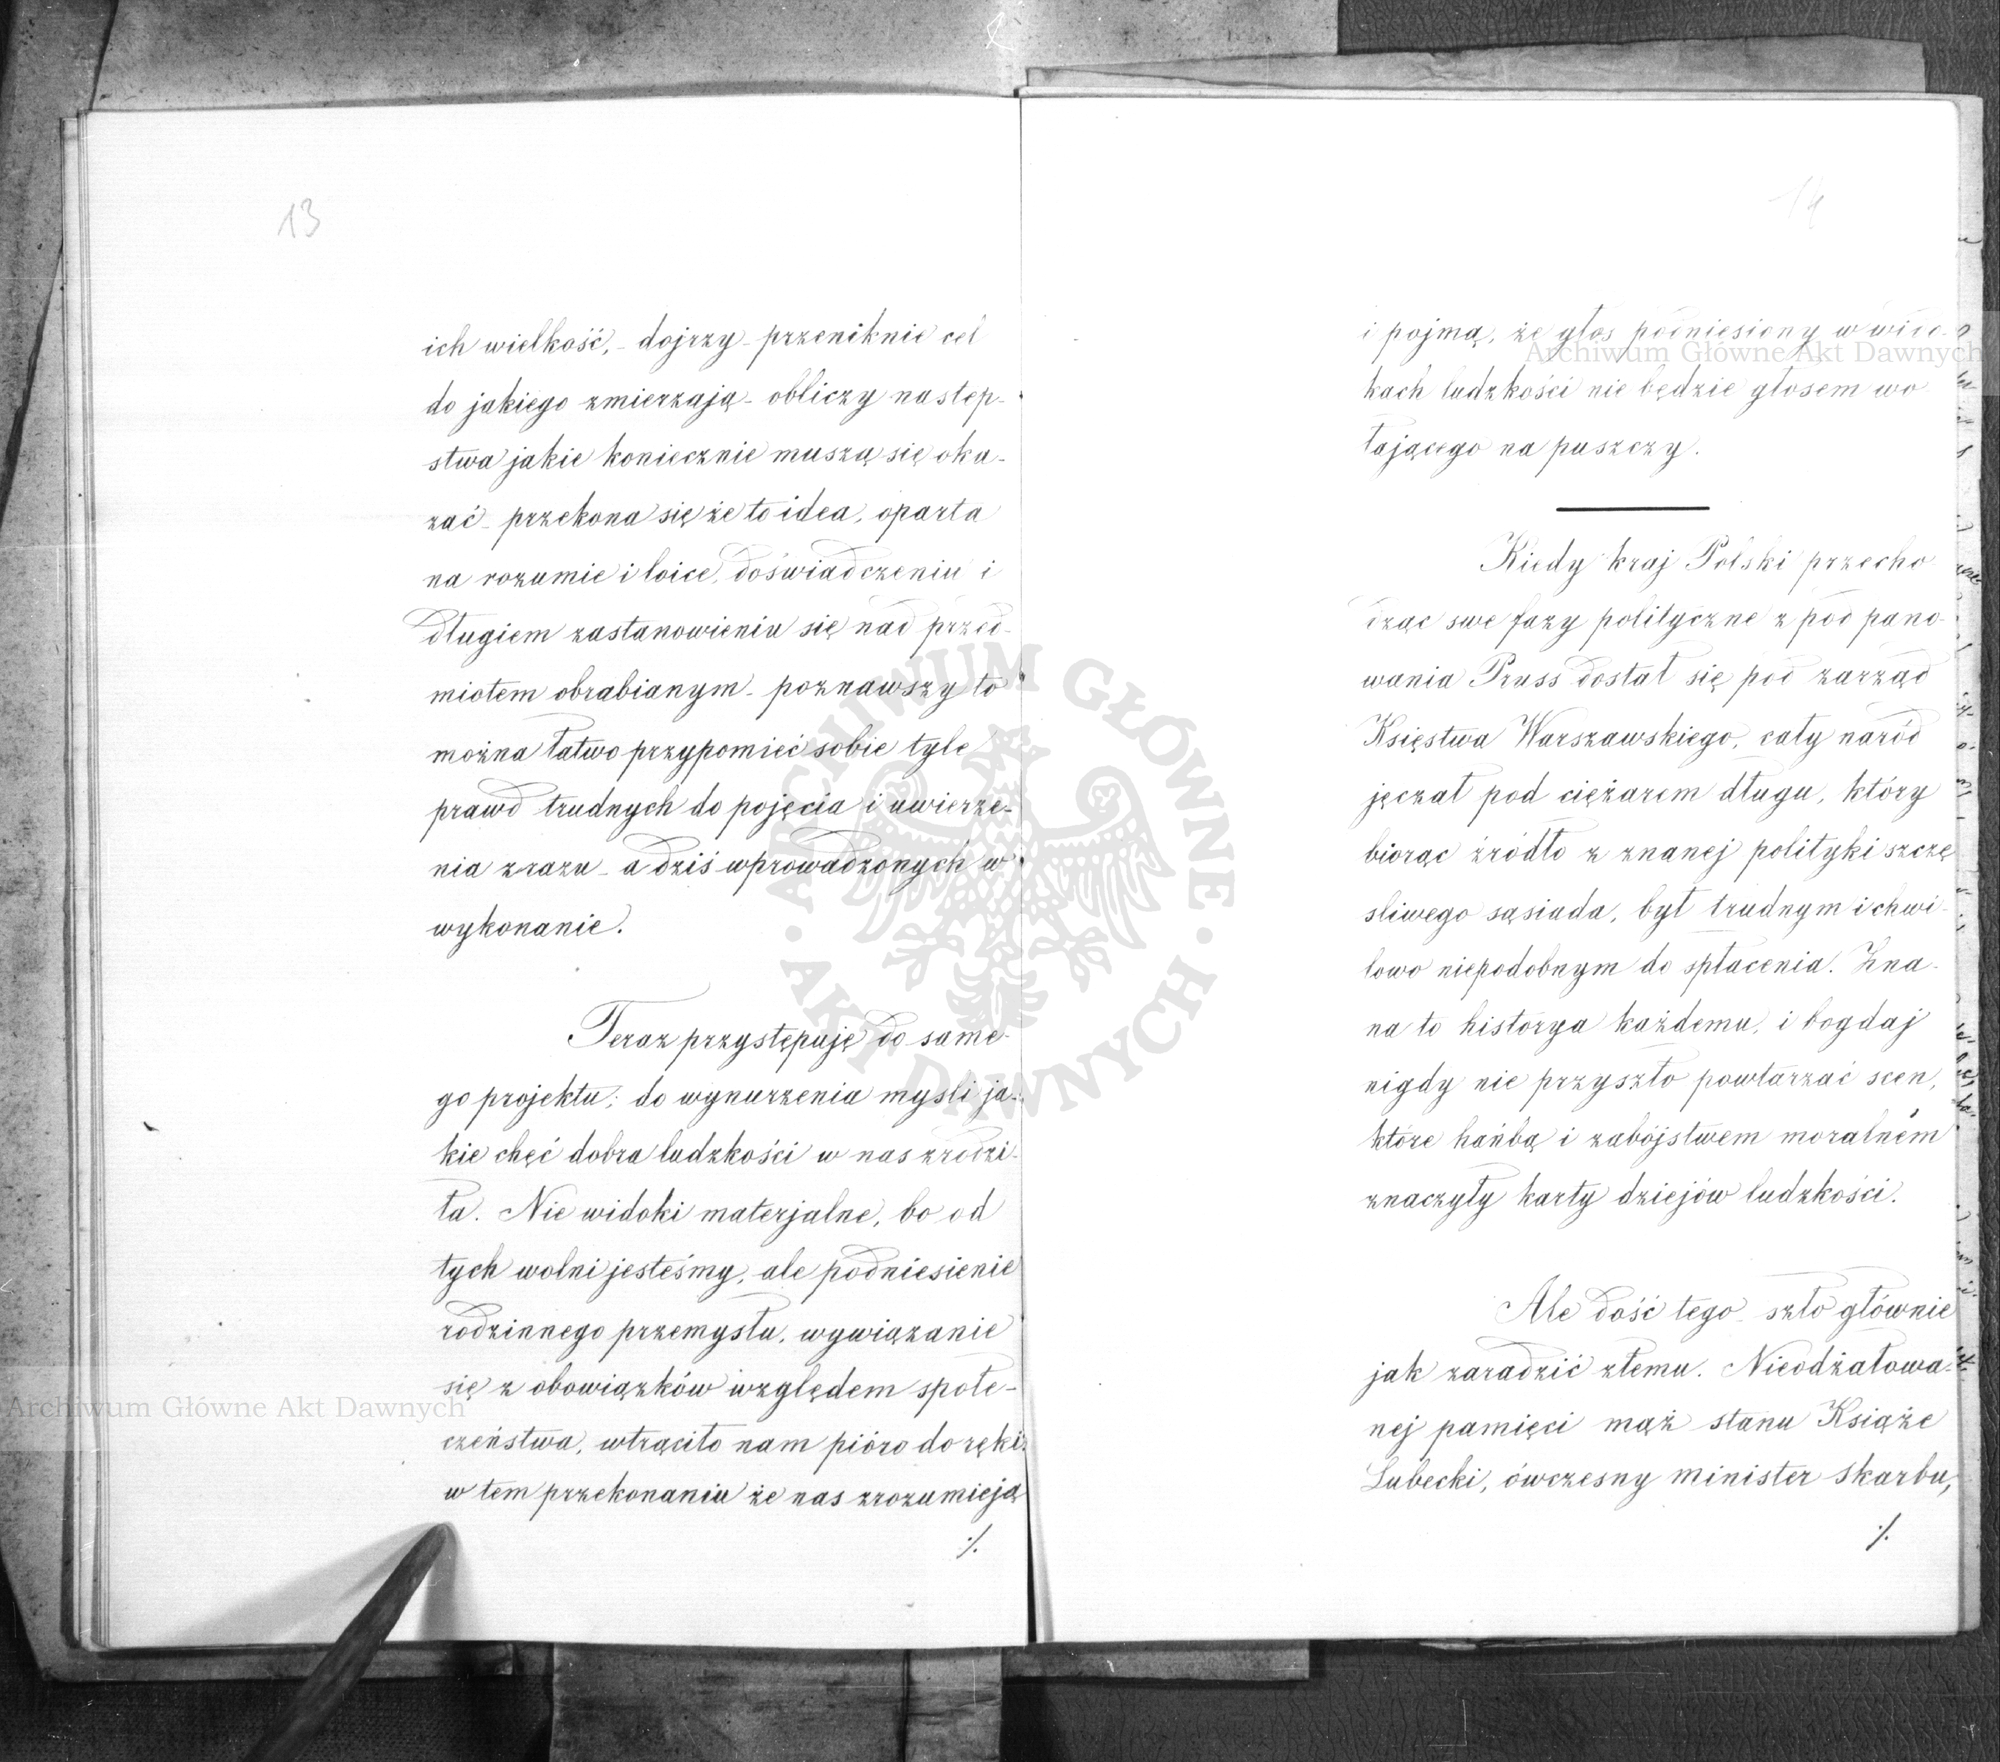 13
ich wielkość, - dojrzy - przeniknie cel
do jakiego zmierzają - obliczy następ-
stwa jakie koniecznie muszą się oka-
zać - przekona się że to idea, oparta
na rozumie i loice, doświadczeniu i
długiem zastanowieniu się nad przed-
miotem obrabianym - poznawszy to
można łatwo przypomieć sobie tyle
prawd trudnych do pojęcia i uwierze-
nia zrazu - a dziś wprowadzonych w
wykonanie.
Teraz przystępuję do same-
go projektu; do wynurzenia myśli ja-
kie chęć dobra ludzkości w nas zrodzi-
ła. Nie widoki materjalne, bo od
tych wolni jesteśmy, ale podniesienie
rodzinnego przemysłu, wywiązanie
się z obowiązków względem społe-
czeństwa, wtrąciło nam pióro do ręki
w tem przekonaniu że nas zrozumieją
./.
14
i pojmą, że głos podniesiony w wie-
kach ludzkości nie będzie głosem wo
łającego na puszczy.
Kiedy kraj Polski przecho
dząc swe fazy polityczne z pod pano-
wania Pruss dostał się pod zarząd
Księstwa Warszawskiego, cały naród
jęczał pod ciężarem długu, który
biorąc źródło z znanej polityki szczę
sliwego sąsiada, był trudnym i chwi-
lowo niepodobnym do spłacenia. Zna-
na to historya każdemu, i bogdaj
nigdy nie przyszło powtarzać scen,
które hańbą i zabójstwem moralném
znaczyły karty dziejów ludzkości.
Ale dość tego - szło głównie
jak zaradzić złemu. Nieodżałowa-
nej pamięci mąż stanu Książe
Lubecki, ówczesny minister skarbu,
./.
Archiwum Główne Akt Dawnych
Archiwum Główne Akt Dawnych
ARCHIWUM GŁÓWNE
· AKT DAWNYCH ·